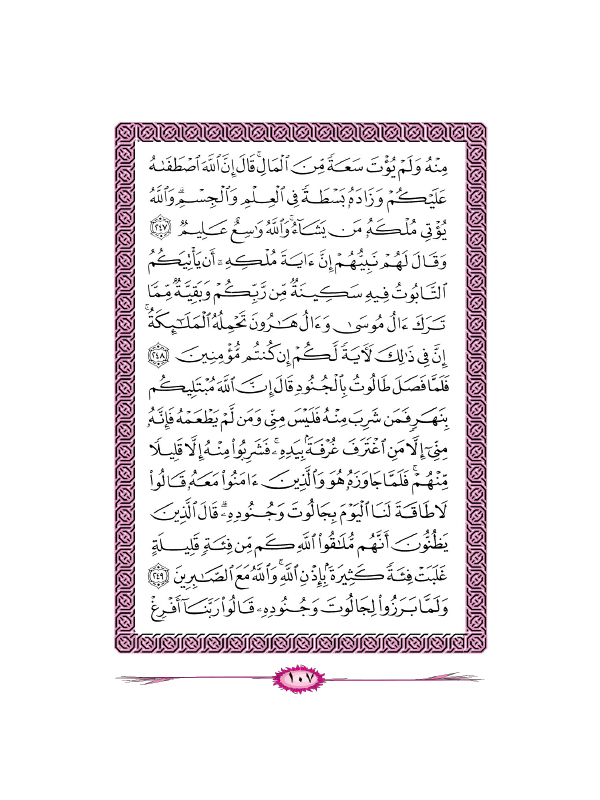 مِنْهُ وَلَمْ يُؤْتَ سَعَةً مِّنَ الْمَالِ ۚ قَالَ إِنَّ اللَّهَ اصْطَفَىٰهُ
عَلَيْكُمْ وَزَادَهُۥ بَسْطَةً فِي الْعِلْمِ وَالْجِسْمِ ۖ وَاللَّهُ
يُؤْتِي مُلْكَهُۥ مَن يَشَآءُ ۚ وَاللَّهُ وَٰسِعٌ عَلِيمٌ ﴿٢٤٧﴾
وَقَالَ لَهُمْ نَبِيُّهُمْ إِنَّ ءَايَةَ مُلْكِهِۦٓ أَن يَأْتِيَكُمُ
التَّابُوتُ فِيهِ سَكِينَةٌ مِّن رَّبِّكُمْ وَبَقِيَّةٌ مِّمَّا
تَرَكَ ءَالُ مُوسَىٰ وَءَالُ هَٰرُونَ تَحْمِلُهُ الْمَلَٰٓئِكَةُ ۚ
إِنَّ فِي ذَٰلِكَ لَءَايَةً لَّكُمْ إِن كُنتُم مُّؤْمِنِينَ ﴿٢٤٨﴾
فَلَمَّا فَصَلَ طَالُوتُ بِالْجُنُودِ قَالَ إِنَّ اللَّهَ مُبْتَلِيكُم
بِنَهَرٍ فَمَن شَرِبَ مِنْهُ فَلَيْسَ مِنِّي وَمَن لَّمْ يَطْعَمْهُ فَإِنَّهُۥ
مِنِّيٓ إِلَّا مَنِ اغْتَرَفَ غُرْفَةًۢ بِيَدِهِۦ ۚ فَشَرِبُوا۟ مِنْهُ إِلَّا قَلِيلًا
مِّنْهُمْ ۚ فَلَمَّا جَاوَزَهُۥ هُوَ وَالَّذِينَ ءَامَنُوا۟ مَعَهُۥ قَالُوا۟
لَا طَاقَةَ لَنَا الْيَوْمَ بِجَالُوتَ وَجُنُودِهِۦ ۚ قَالَ الَّذِينَ
يَظُنُّونَ أَنَّهُم مُّلَٰقُوا۟ اللَّهِ كَم مِّن فِئَةٍ قَلِيلَةٍ
غَلَبَتْ فِئَةً كَثِيرَةًۢ بِإِذْنِ اللَّهِ ۗ وَاللَّهُ مَعَ الصَّٰبِرِينَ ﴿٢٤٩﴾
وَلَمَّا بَرَزُوا۟ لِجَالُوتَ وَجُنُودِهِۦ قَالُوا۟ رَبَّنَآ أَفْرِغْ
١٠٧